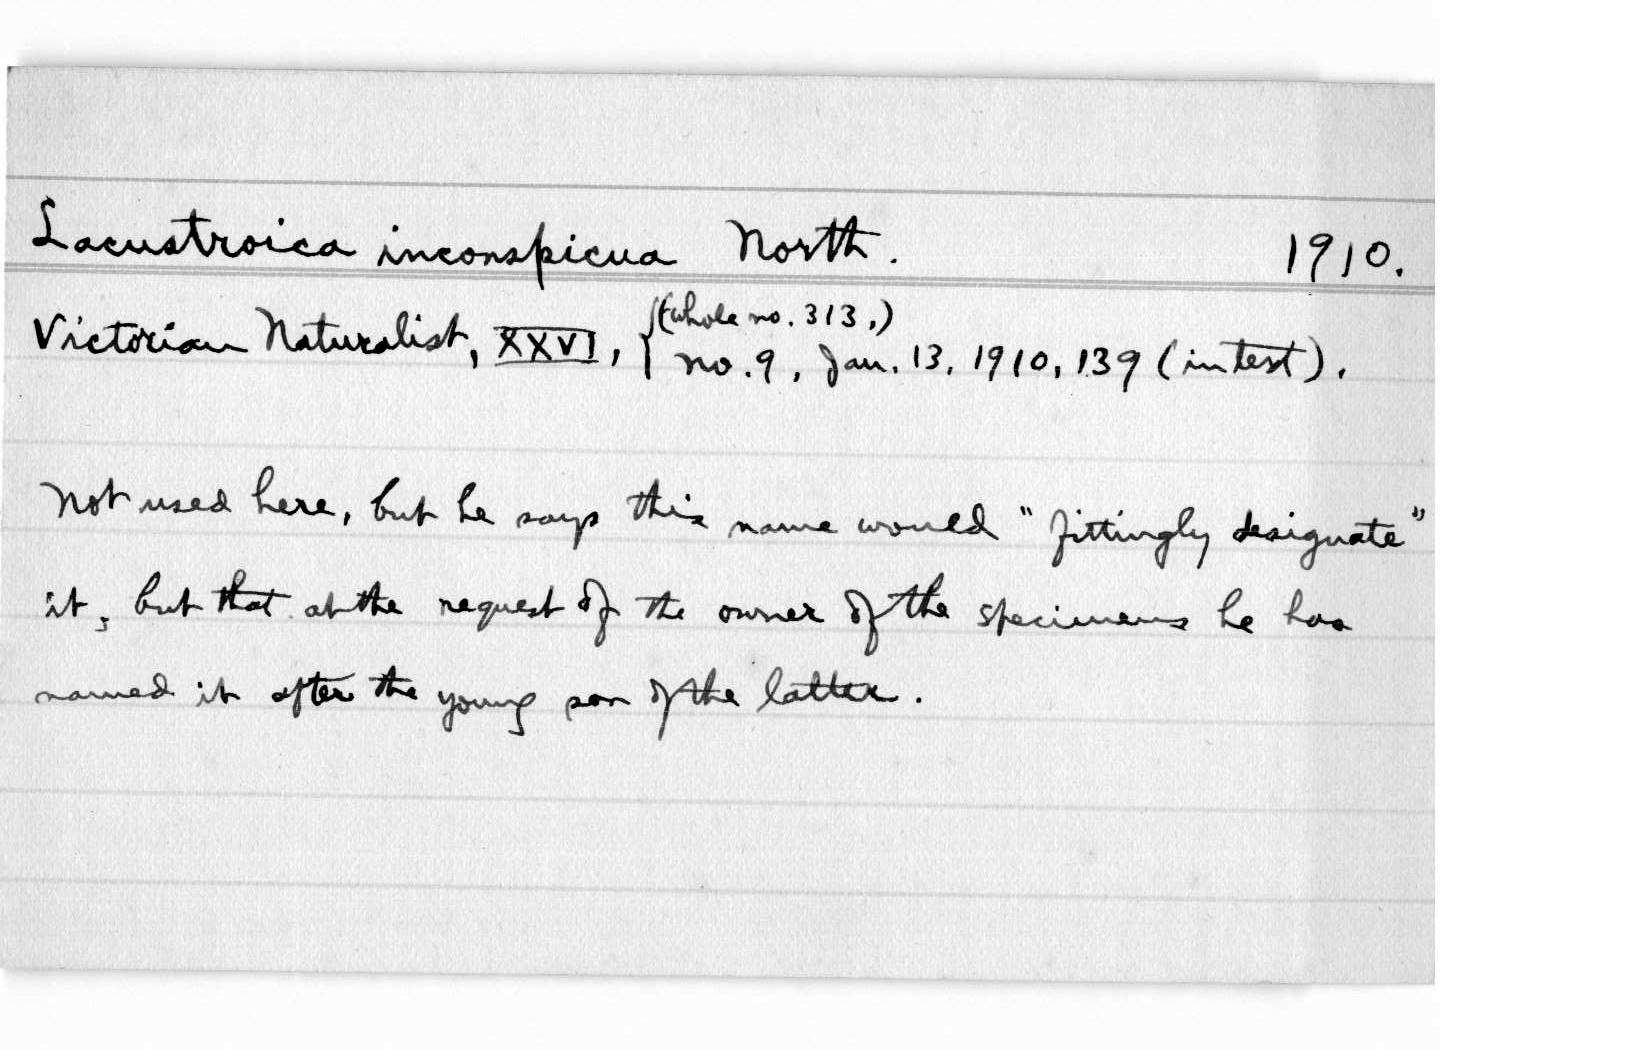 Lacustroica inconspicua North. 1910.
Victorian Naturalist, XXVI, { (whole no. 313,)
no. 9, Jan. 13, 1910, 139 (in text).
Not used here, but he says this name would "fittingly designate"
it, but that at the request of the owner of the specimens he has
named it after the young son of the latter.